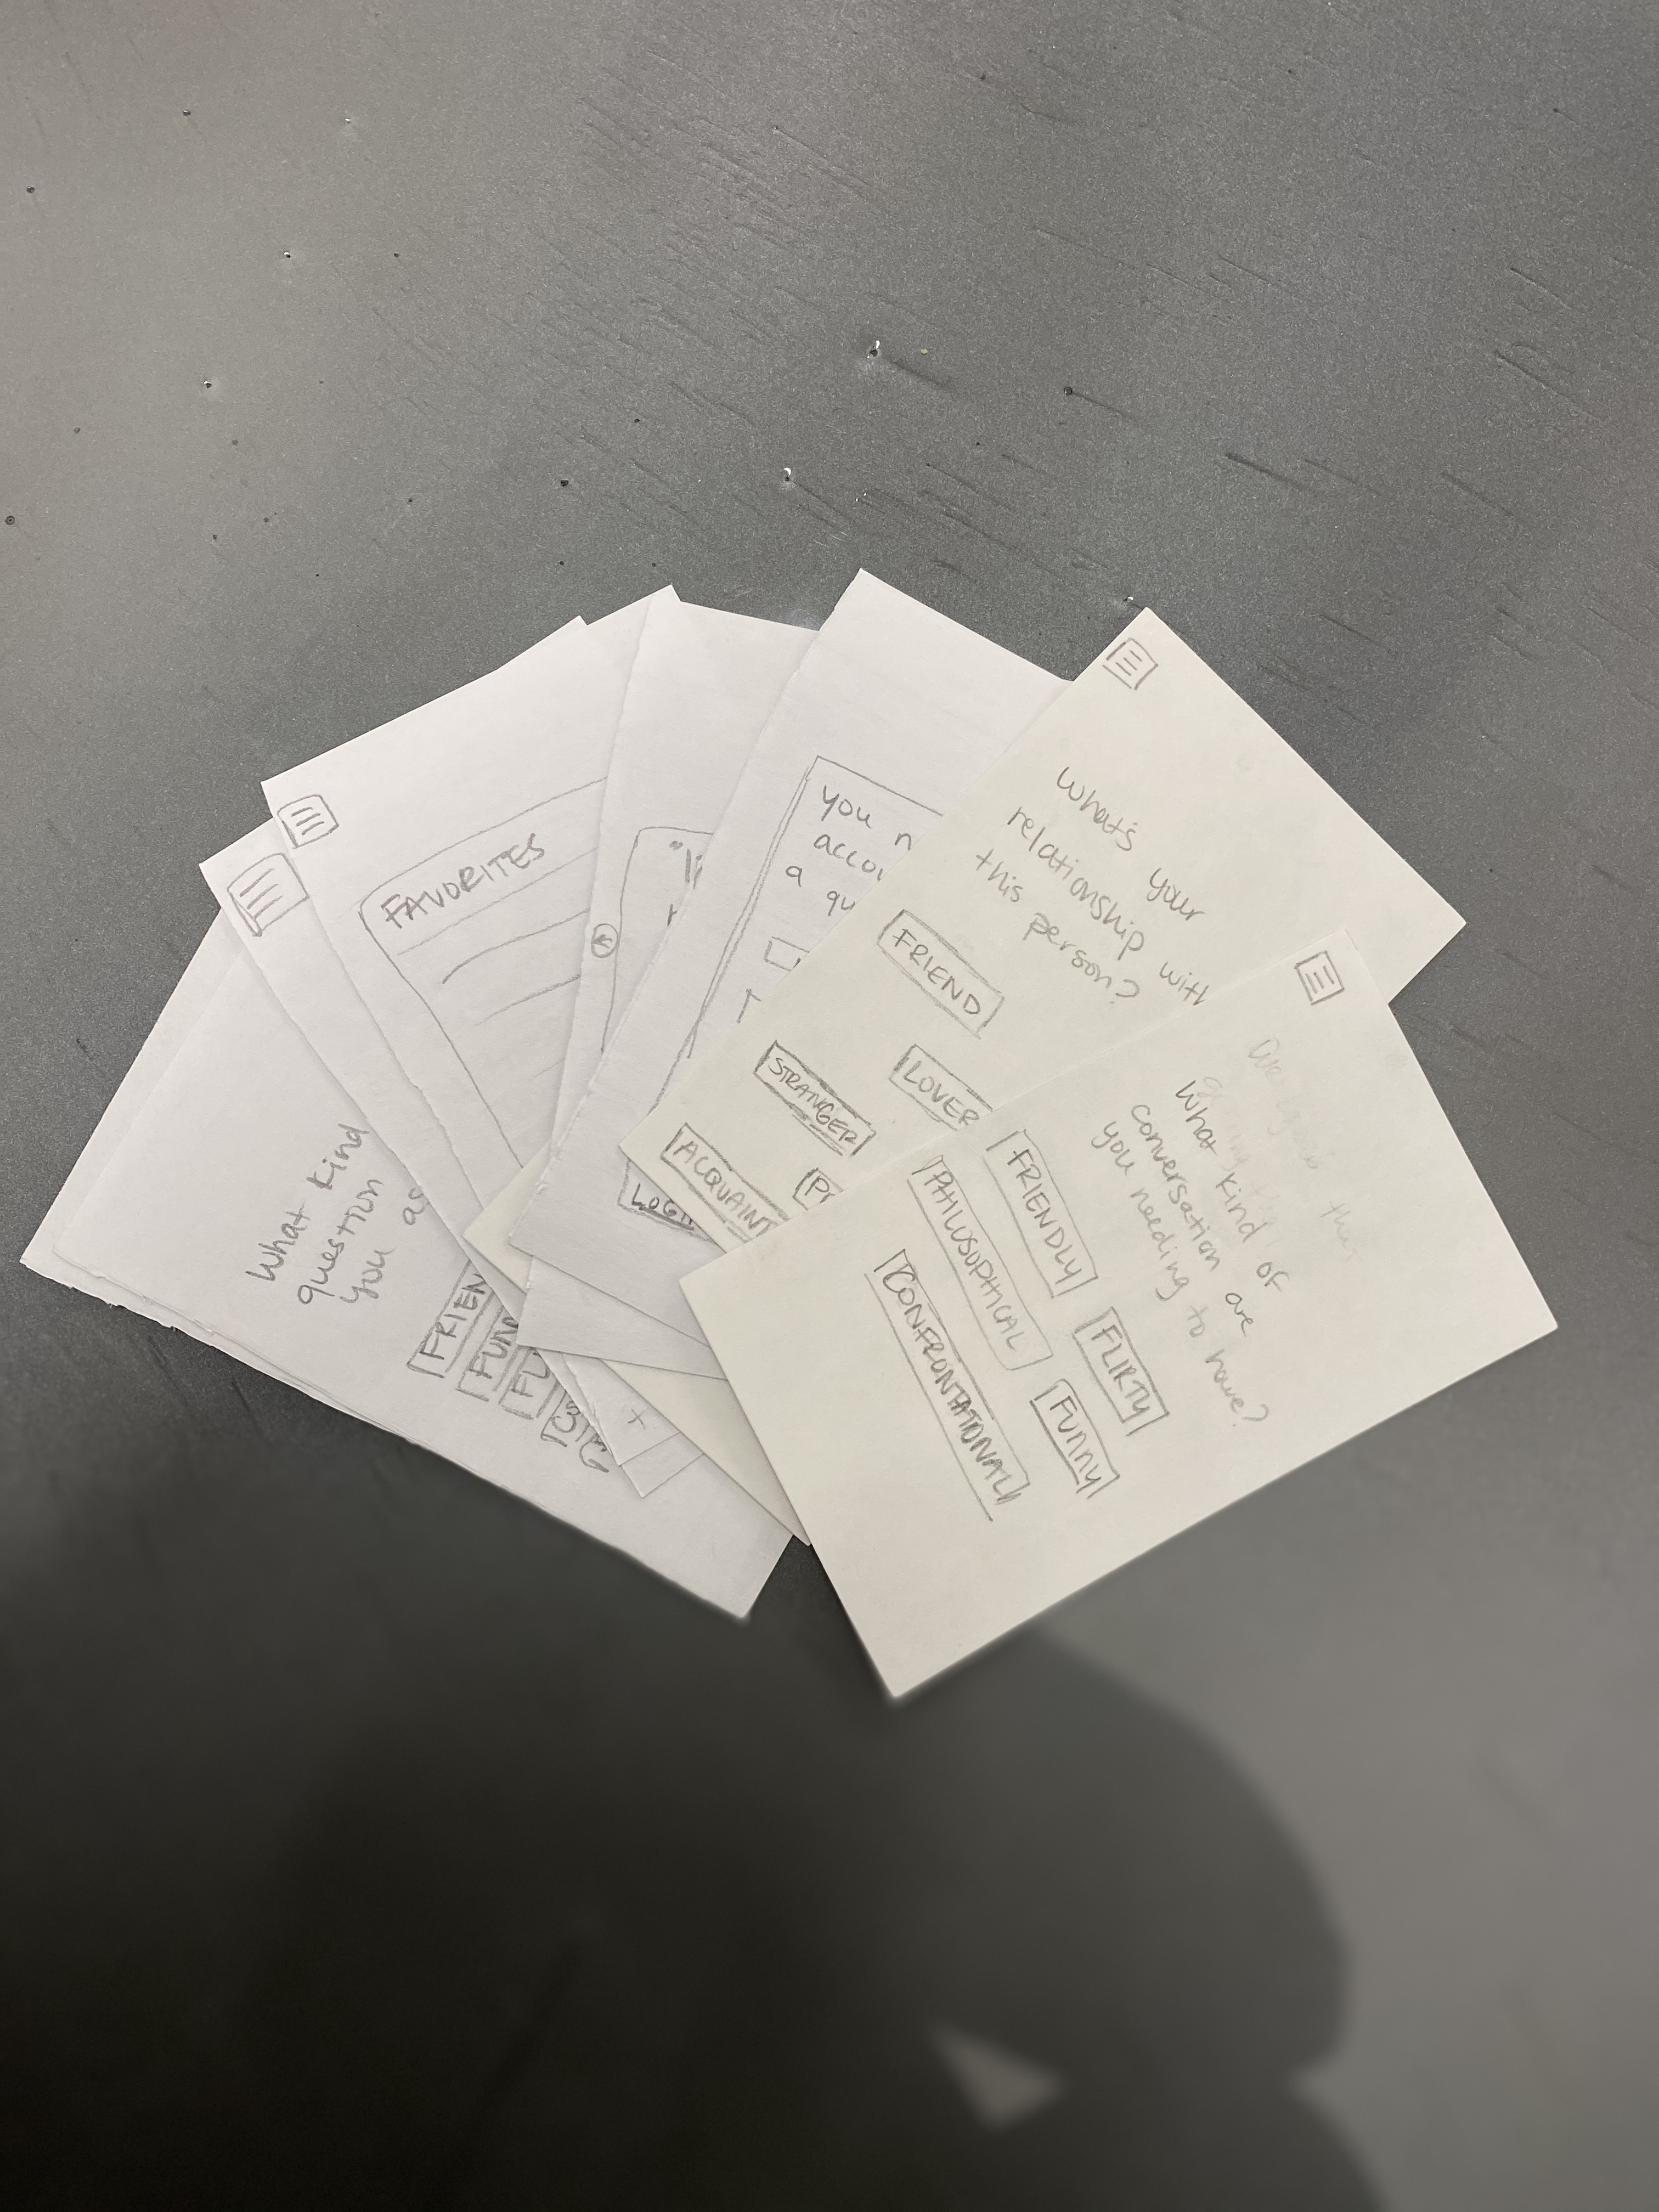 What kind
question
you as
FRIEN
FUNN
FL
FAVORITES
you n
accou
a qu
LOGIN
What's your
relationship with
this person?
FRIEND
STRANGER
LOVER
ACQUAINT
PR
What kind of
conversation are
you needing to have?
FRIENDLY
PHILOSOPHICAL
FLIRTY
CONFRONTATIONAL
FUNNY